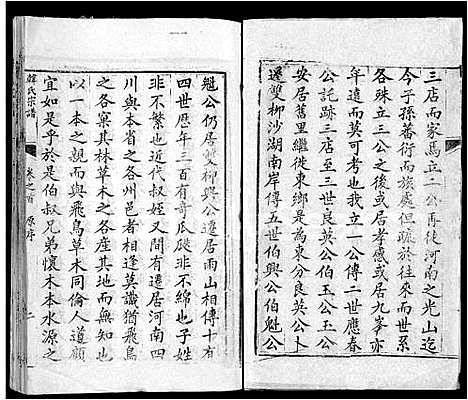 三店而家馬立二公再徙河南之光山迄
今子孫蕃衍而旅處但疏於往來而世系
各殊立三公之後或居孝感或居九峯亦
年遠而莫可考也我立一公傳二世應春
公託跡三店至三世良英公生玉公玉公
安居舊里繼徙東鄉是為東分良英公卜
遷雙柳沙湖南岸傳五世伯興公伯魁公
魁公仍居雙柳興公遷居雨山相傳十有
四世歷年三百有奇瓜瓞非不綿也子姓
非不繁也近代叔姪又間有遷居河南四
川與本省之各州邑者相逢莫識猶飛鳥
之各窠其林草木之各產其地而無知也
以一本之親而與飛鳥草木同倫人道顧
宜如是乎於是伯叔兄弟懷木本水源之
韓氏宗譜
卷之首
原序
二